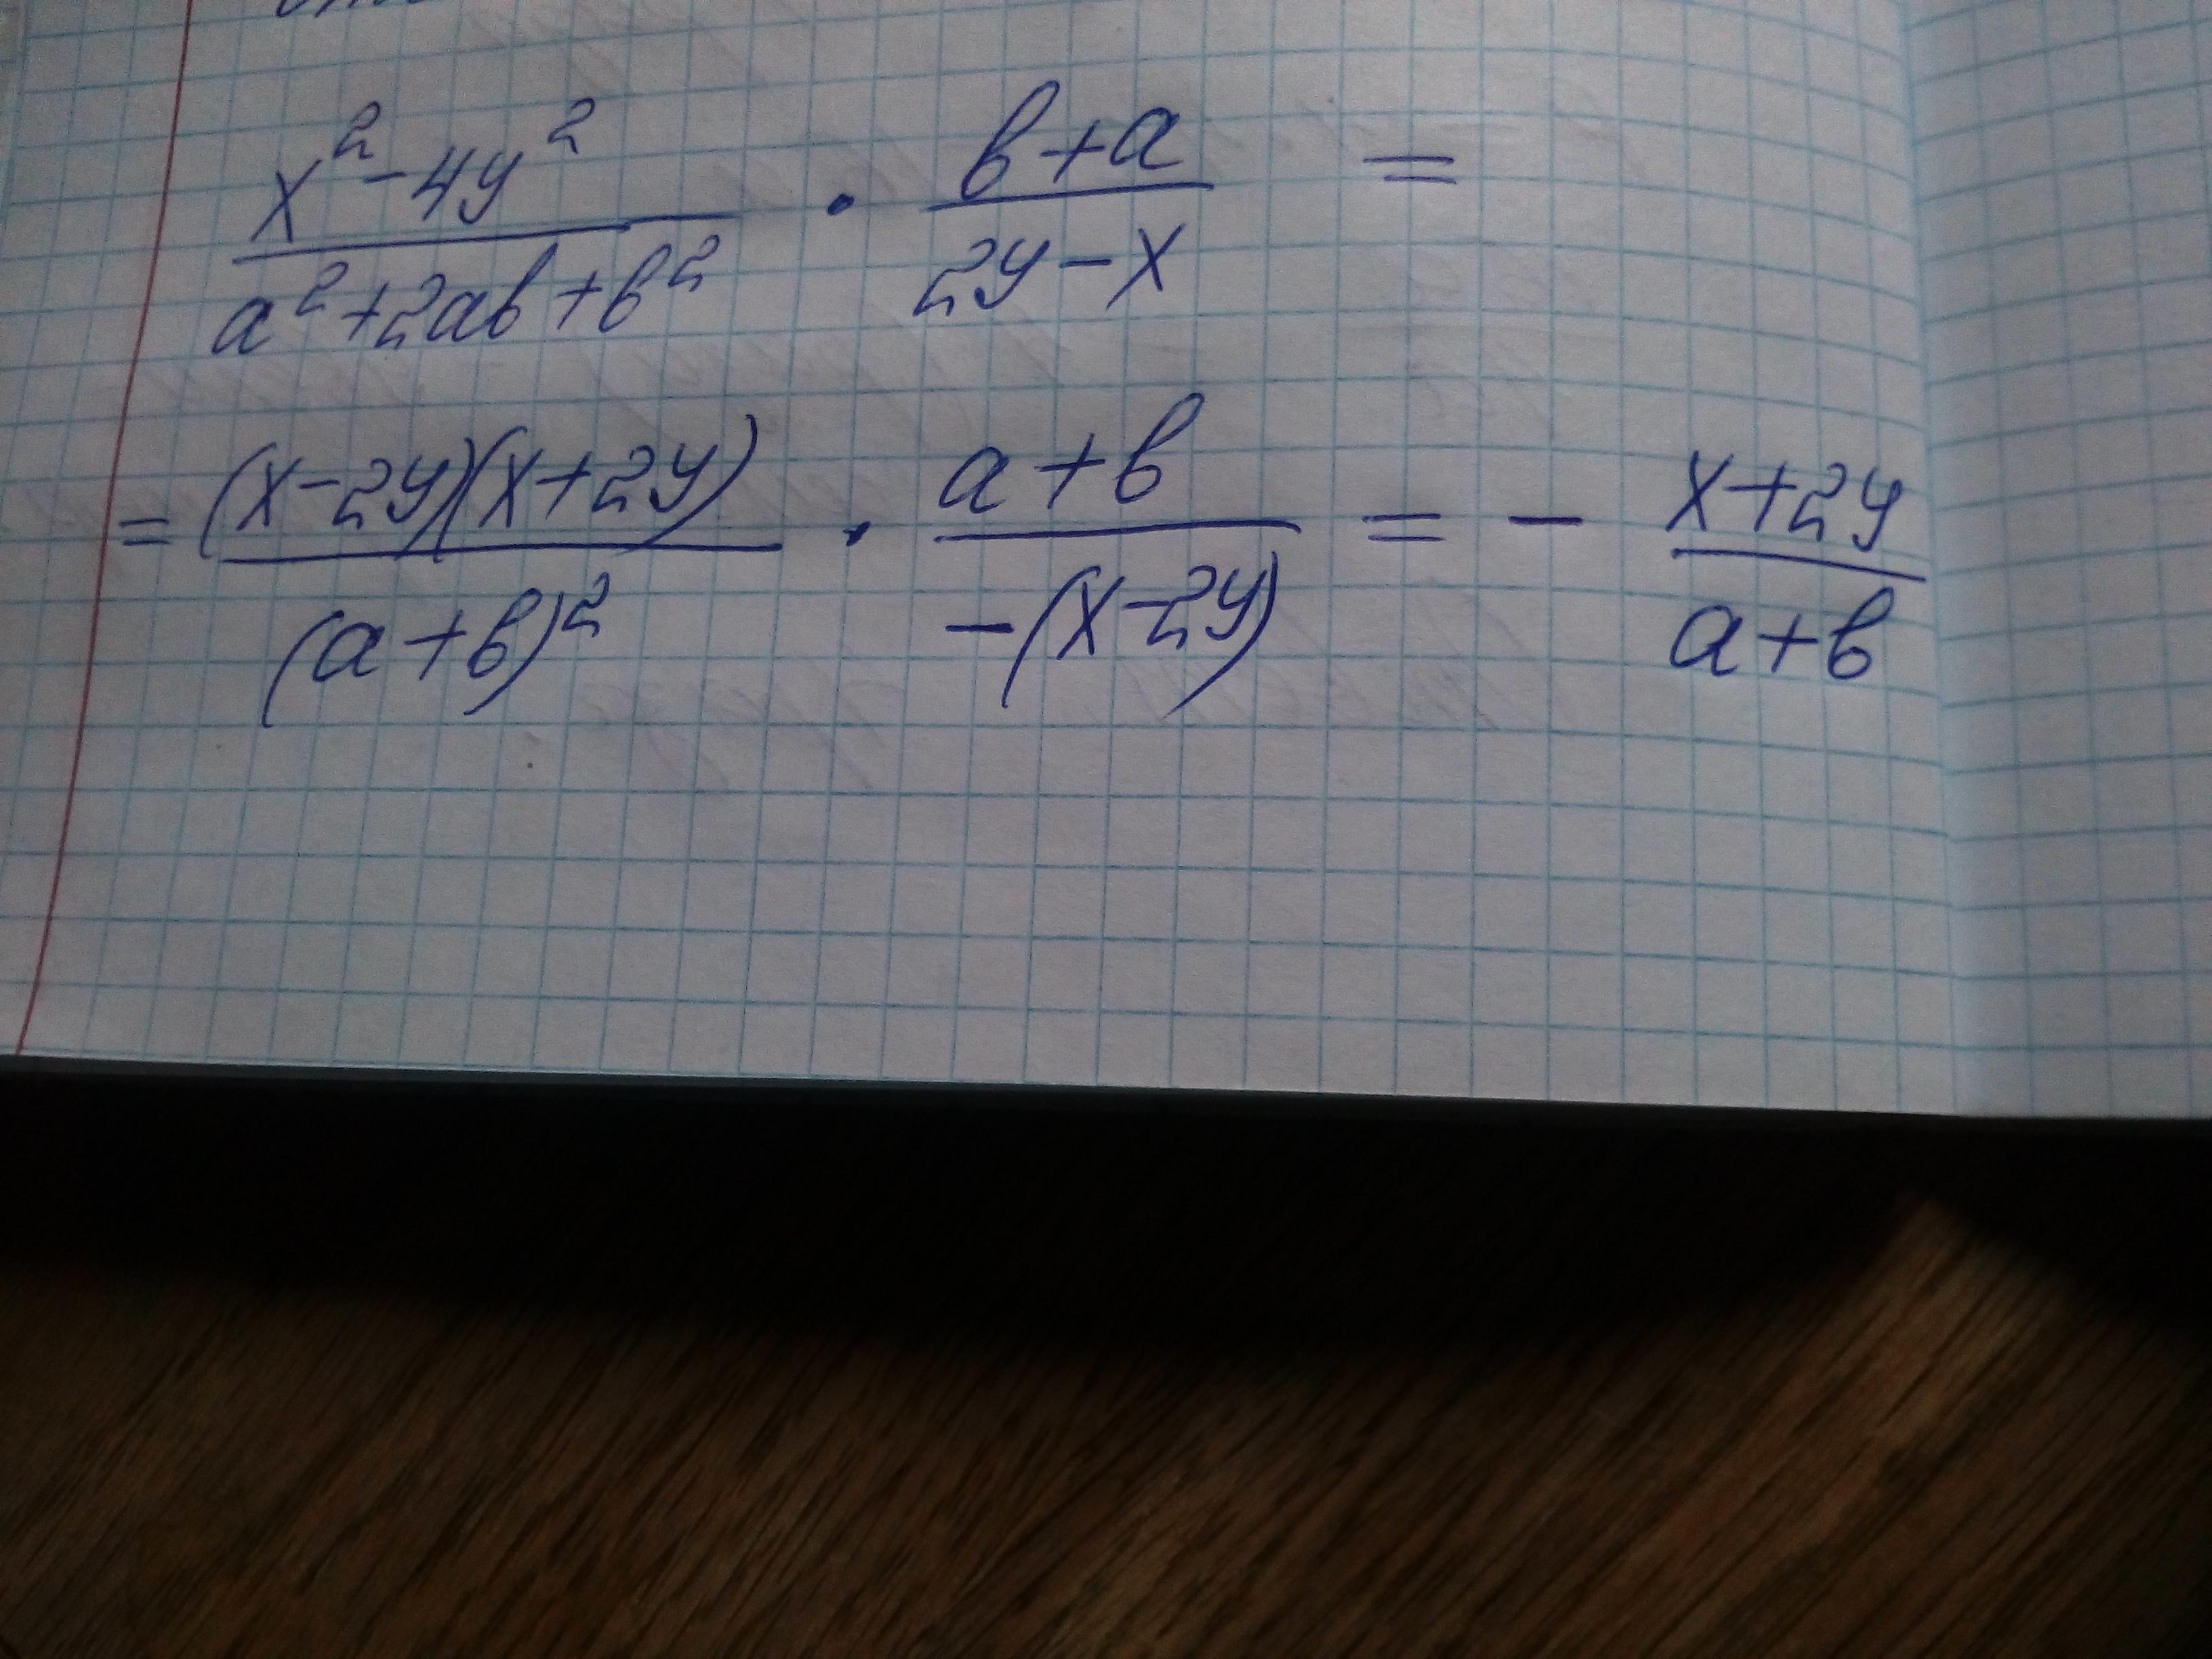 x²-4y² / a²+2ab+b² · b+a / 2y-x =
= (x-2y)(x+2y) / (a+b)² · a+b / -(x-2y) = - x+2y / a+b